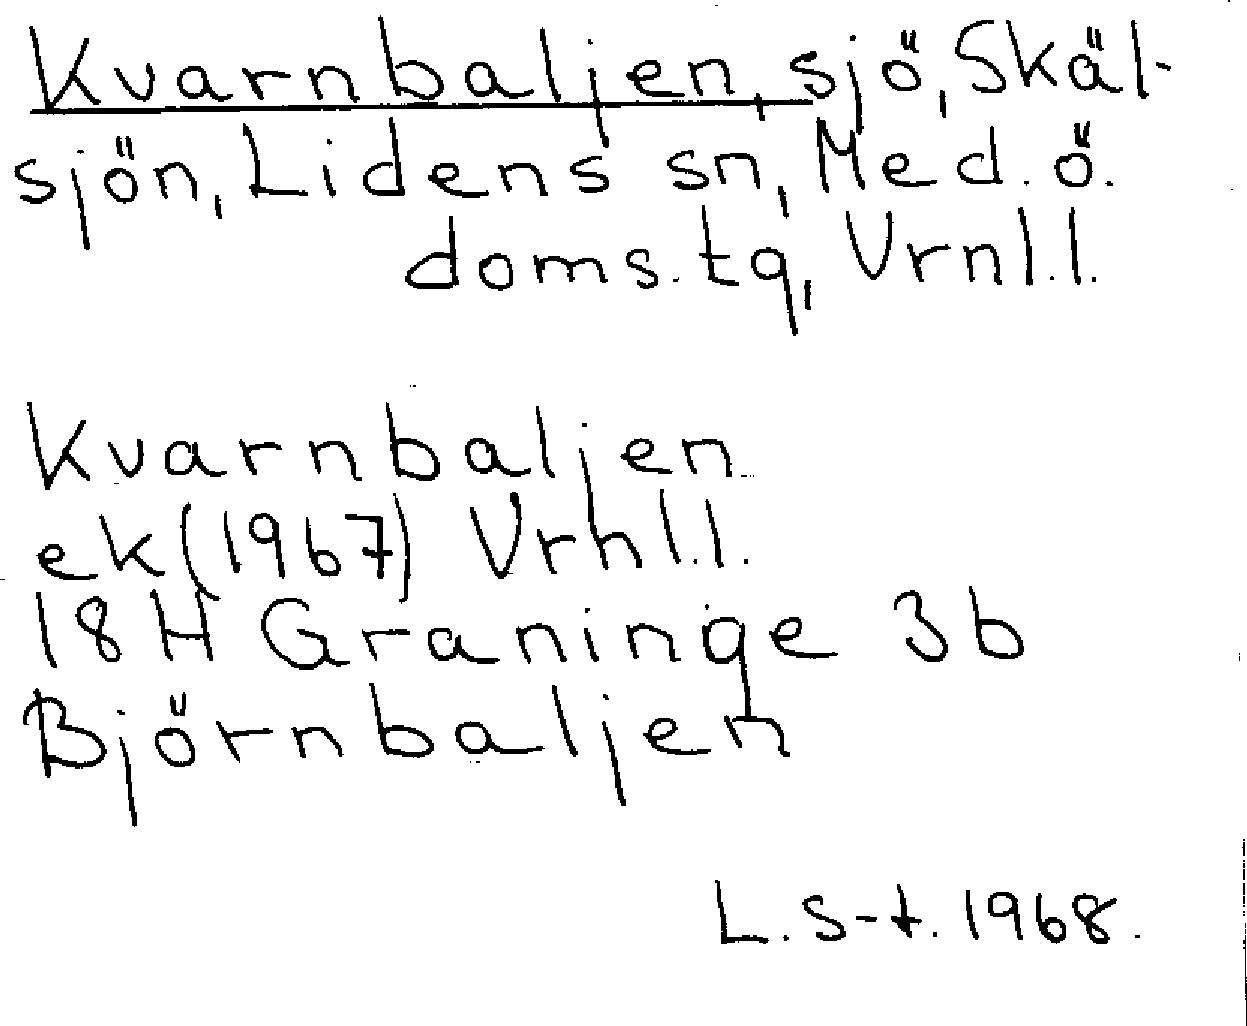 Kvarnbaljen, sjö, Skäl-
sjön, Lidens sn, Med. ö.
doms. tg, Vrnl.l.
Kvarnbaljen
ek (1967) Vrnl.l.
18H Graninge 3b
Björnbaljen
L. S-t. 1968.